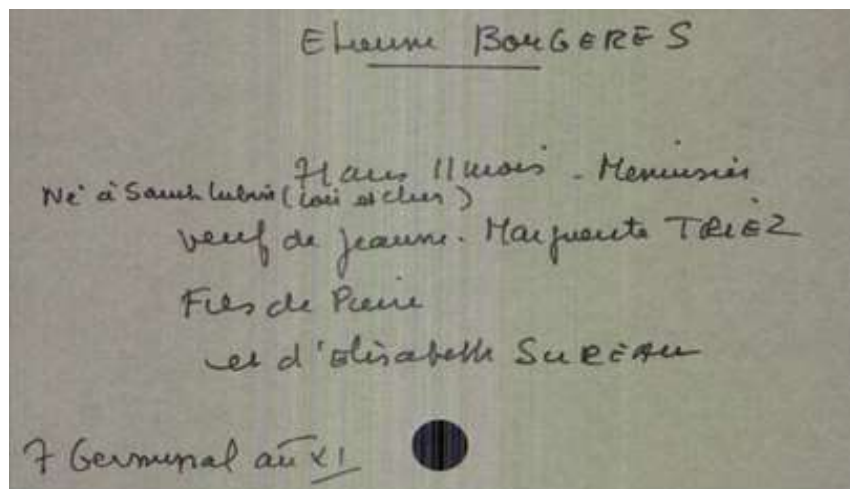 Etienne BOUGERES
71 ans 11 mois - Menuisier
Né à Saint Lubin (Loir et cher)
veuf de Jeanne - Marguerite TRIEZ
Fils de Pierre
et d'Elisabeth SUREAU
7 Germinal an XI